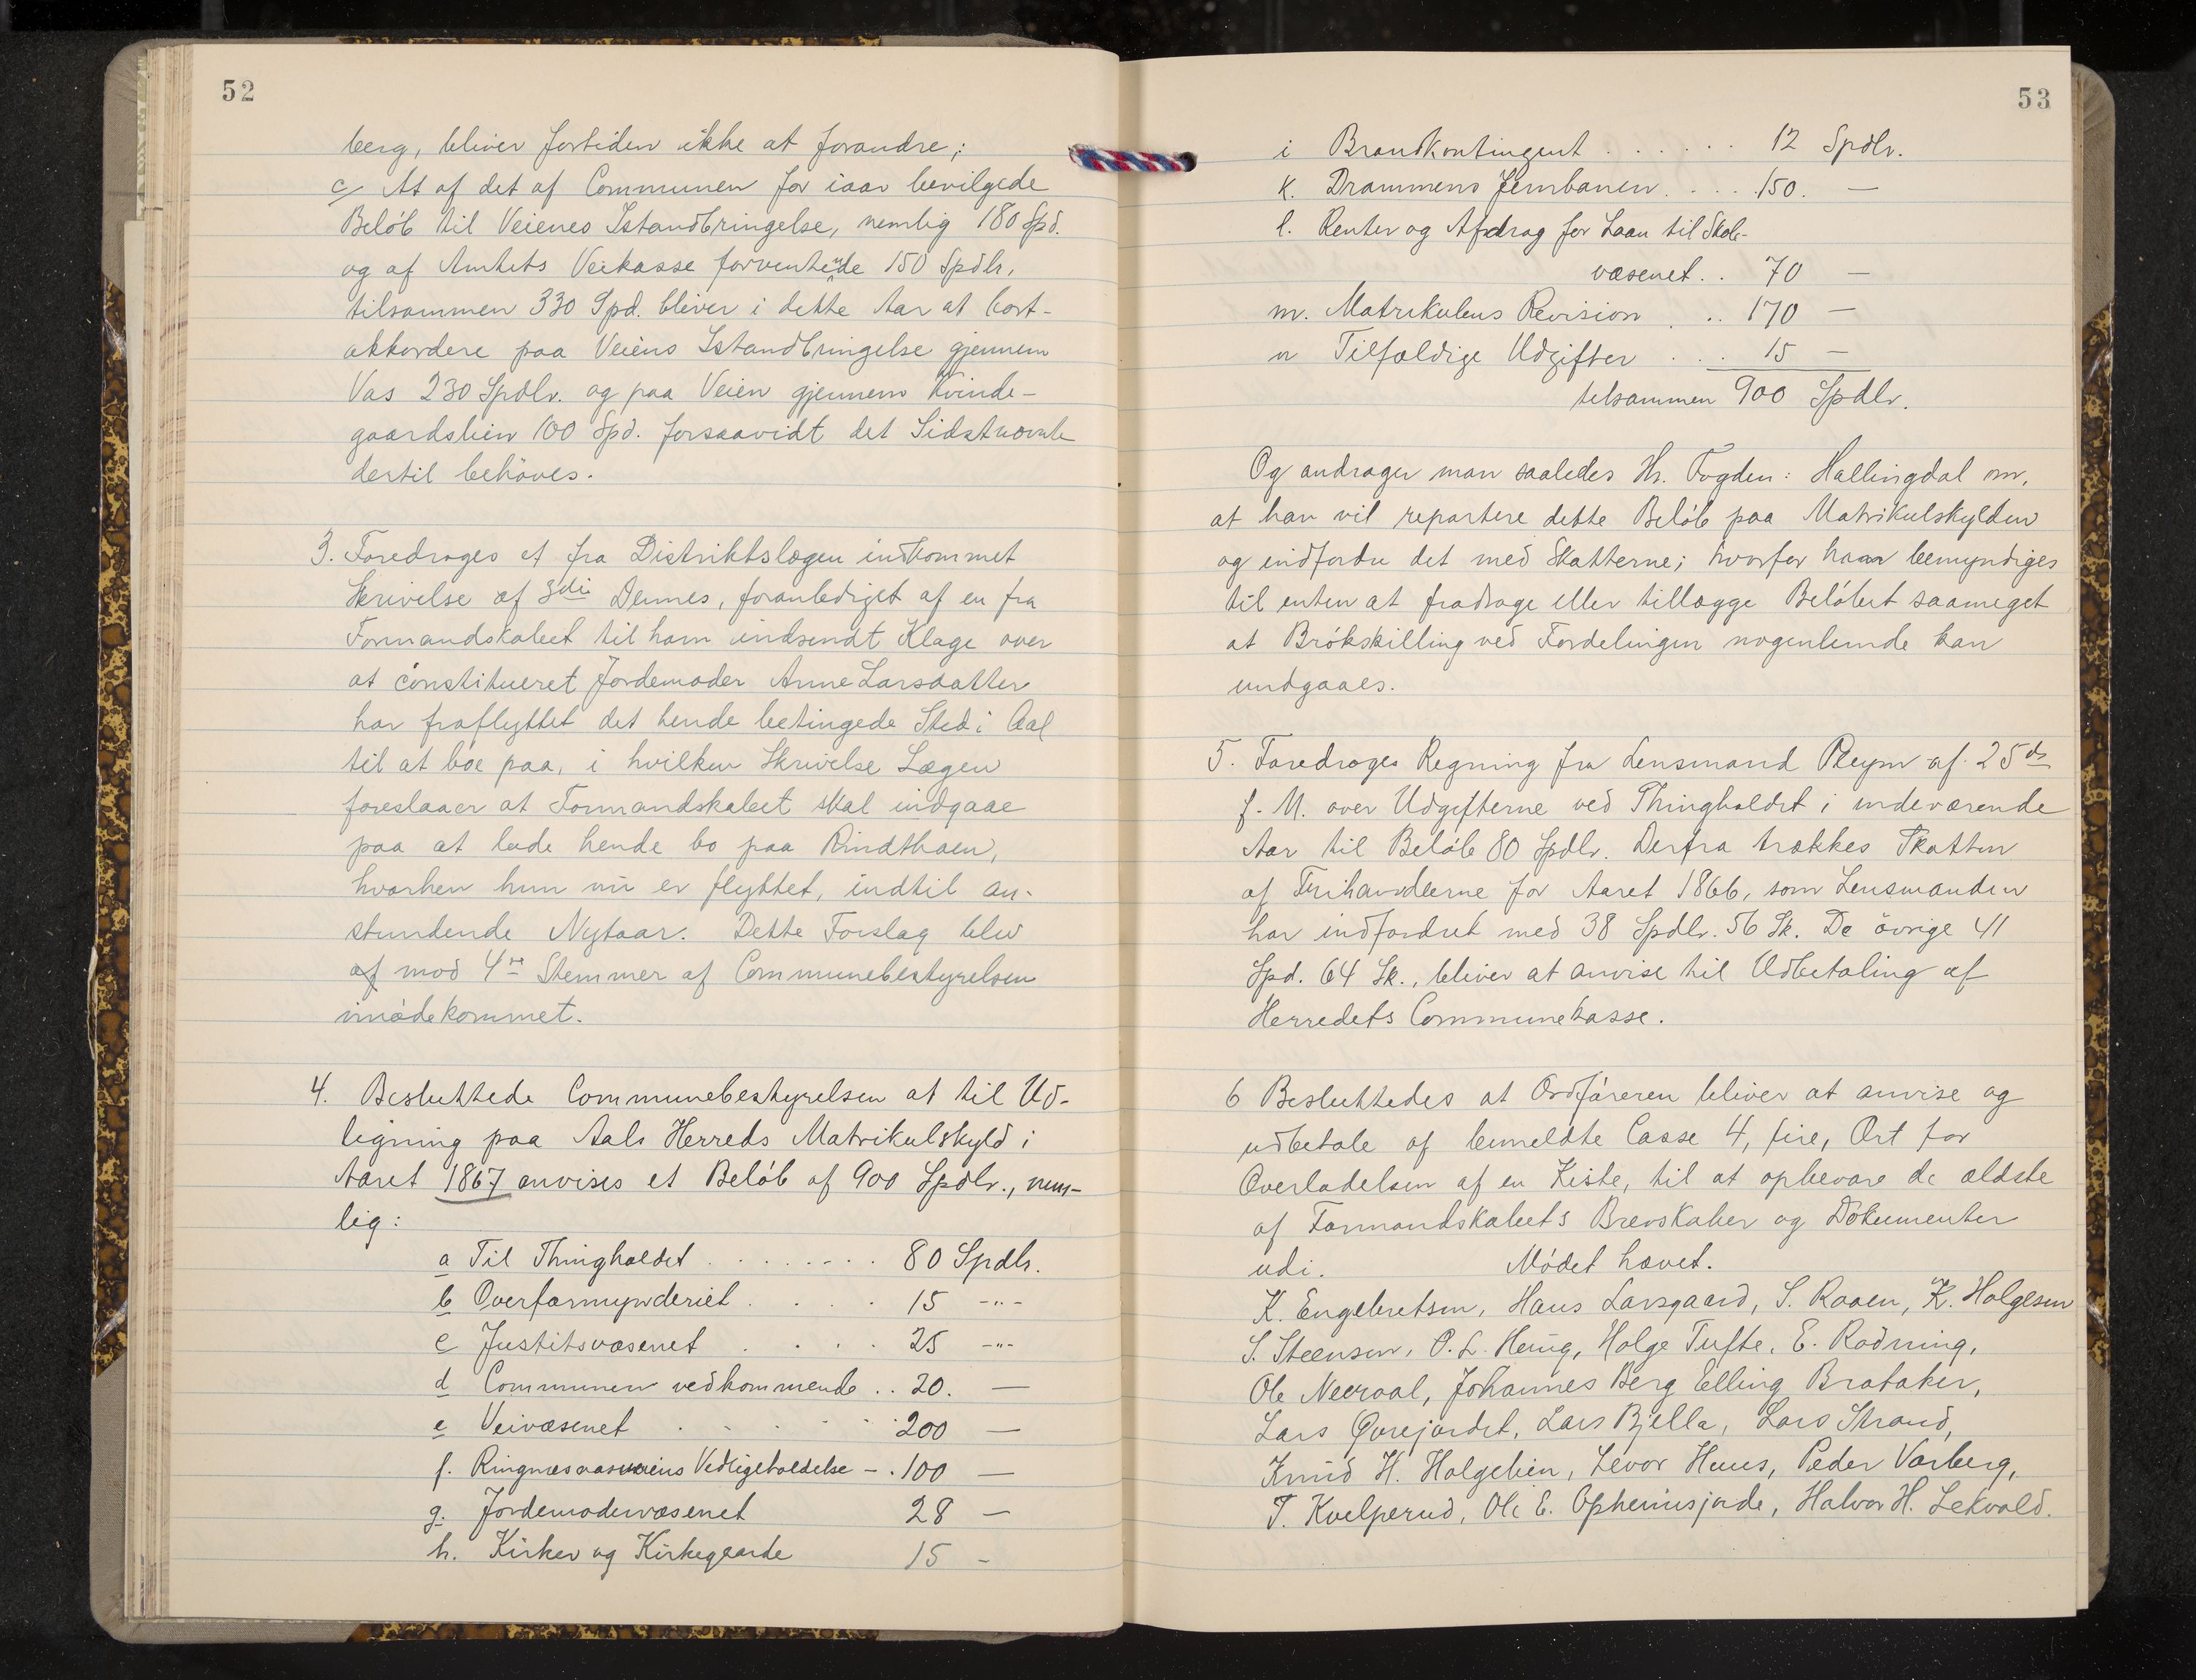 52
berg, bliver fortiden ikke at forandre;
c/ At af det af Communen for iaar bevilgede
Beløb til Veienes Istandbringelse, nemlig 180 Spd.
og af Amtets Veikasse forventende 150 Spdlr,
tilsammen 330 Spd. bliver i dette Aar at bort-
akkordere paa Veiens Istandbringelse gjennem
Vas 230 Spdlr. og paa Veien gjennem Kvinde-
gaardslien 100 Spd. forsaavidt det Sidstnævnte
dertil behöves.
3. Foredroges et fra Distriktslægen indkommet
Skrivelse af 3die Dennes, foranlediget af en fra
Formandskabet til ham indsendt Klage over
at constitueret Jordemoder Anne Larsdatter
har fraflyttet det hende betingede Sted i Aal
til at boe paa, i hvilken Skrivelse Lægen
foreslaaer at Formandskabet skal indgaae
paa at lade hende bo paa Rindthaen,
hvorhen hun nu er flyttet, indtil an-
stundende Nytaar. Dette Forslag blev
af mod 4re Stemmer af Communebestyrelsen
imødekommet.
4. Besluttede Communebestyrelsen at til Ud-
ligning paa Aals Herreds Matrikulskyld i
Aaret 1867 anvises et Beløb af 900 Spdlr., nem-
lig:
a Til Thingholdet . . . . . . . . 80 Spdlr.
b Overformynderiet . . . . 15 -"-
c Justitsvæsenet . . . . 25 -"-
d Communen vedkommende . . 20. —
e Veivæsenet . . . . . . 200 —
f. Vedligeholdelse - . 100 —
g. Jordemodervæsenet 28 —
h. Kirker og Kirkegaarde 15 -
53
i Brandkontingent . . . . . . 12 Spdlr.
k. Drammens Jernbanen . . . . 150. —
l. Renter og Afdrag for Laan til Skole-
væsenet . . 70 —
m. Matrikulens Revision . . . 170 —
n Tilfældige Udgifter . . . 15 —
tilsammen 900 Spdlr.
Og andrager man saaledes Hr. Fogden i Hallingdal om,
at han vil repartere dette Beløb paa Matrikulskylden
og indfordre det med Skatterne; hvorfor han bemyndiges
til enten at fradrage eller tillægge Beløbet saameget
at Brökskilling ved Fordelingen nogenlunde kan
undgaaes.
5. Foredroges Regning fra Lensmand Pleym af 25de
f. M. over Udgifterne ved Thingholdet i indeværende
Aar til Beløb 80 Spdlr. Derfra trækkes Skatten
af Frihandlerne for Aaret 1866, som Lensmanden
har indfordret med 38 Spdlr. 56 Sk. De övrige 41
Spd. 64 Sk., bliver at anvise til Udbetaling af
Herredets Communekasse.
6 Besluttedes at Ordföreren bliver at anvise og
udbetale af bemeldte Casse 4, fire, Ort for
Overladelsen af en Kiste, til at opbevare de ældste
af Formandskabets Brevskaber og Dokumenter
udi. Mödet hævet.
K. Engebretsen, Hans Larsgaard, S. Raaen, K. Holgesen
S. Steensen, O. L. Haug, Holge Tufte, E. Rødning,
Ole Neeraal, Johannes Berg Elling Brataker,
Lars Øvrejordet, Lars Bjella, Lars Strand,
Knud H. Holgelien, Levor Huus, Peder Varberg,
T. Kvelperud, Ole E. Opheimsjorde, Halvor H. Lekvold.